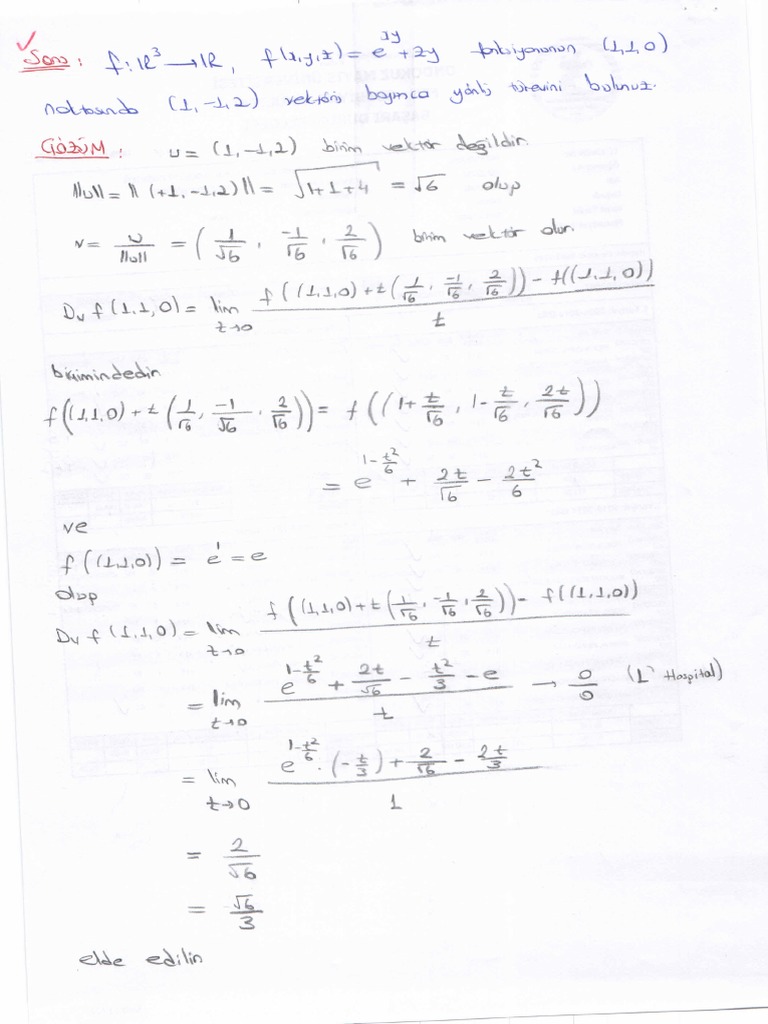 Soru: f: ℝ³ → ℝ, f(x,y,z) = e^{xy} + zy fonksiyonunun (1,1,0)
noktasında (1,-1,2) vektörü boyunca yönlü türevini bulunuz.
ÇÖZÜM: u = (1,-1,2) birim vektör değildir.
||u|| = ||(+1,-1,2)|| = √(1+1+4) = √6 olup
v = u/||u|| = (1/√6, -1/√6, 2/√6) birim vektör olur.
D_v f(1,1,0) = lim_{t→0} [f((1,1,0) + t(1/√6, -1/√6, 2/√6)) - f((1,1,0))] / t
biçimindedir
f((1,1,0) + t(1/√6, -1/√6, 2/√6)) = f((1+t/√6, 1-t/√6, 2t/√6))
= e^{1-t²/6} + 2t/√6 - 2t²/6
ve
f((1,1,0)) = e¹ = e
olup
D_v f(1,1,0) = lim_{t→0} [f((1,1,0) + t(1/√6, -1/√6, 2/√6)) - f((1,1,0))] / t
= lim_{t→0} [e^{1-t²/6} + 2t/√6 - t²/3 - e] / t → 0/0 (L' Hospital)
= lim_{t→0} [e^{1-t²/6} · (-t/3) + 2/√6 - 2t/3] / 1
= 2/√6
= √6/3
elde edilir